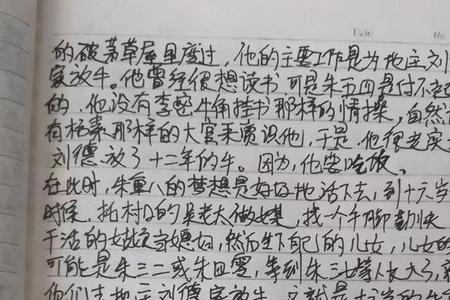 Date No
的破茅草屋里度过，他的主要工作是为地主刘
家放牛。他曾经很想读书 可是朱五四是付不起
的，他没有李密牛角挂书那样的情操，自然
有杨素那样的大官来赏识他，于是，他很老实
刘德放了十二年的牛。因为，他要吃饭。
在此时，朱重八的梦想是好好地活下去，到十六岁
时候，托村口的吴老大做媒，找一个手脚勤快
干活的姑娘当媳妇，然后生下自己的儿女，儿女的
可能是朱三二或朱四零，等到朱三二等人大了，
他们去地主刘德家放牛